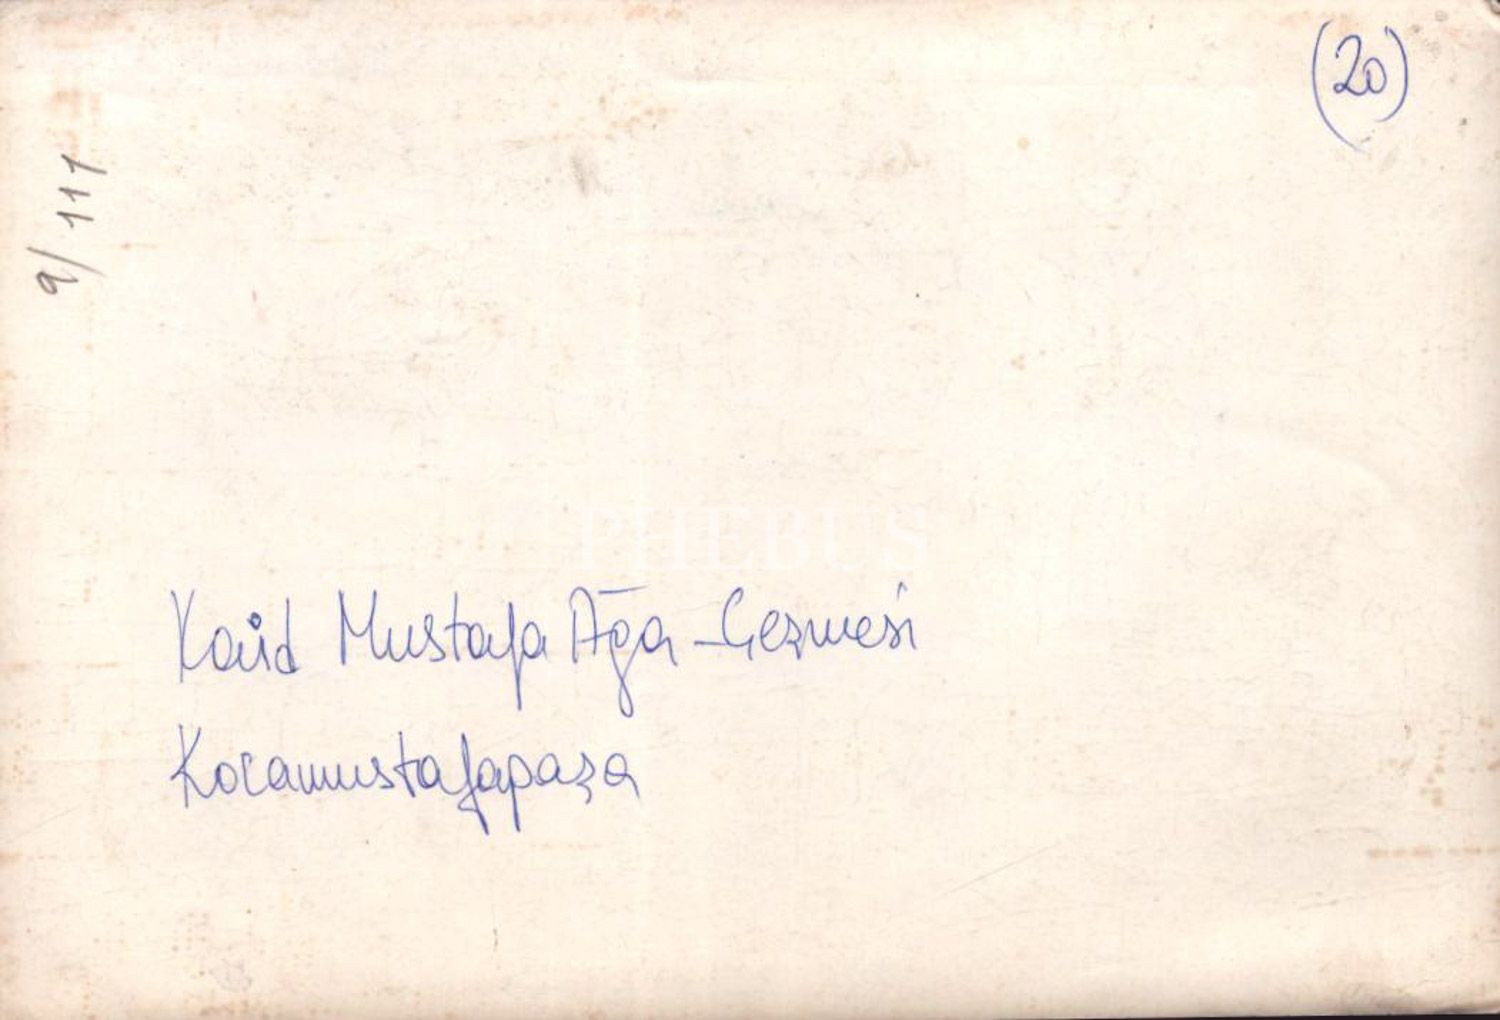 (20)
9/111
PHEBUS
Mustafa Ağa Çeşmesi
Kocamustafapaşa